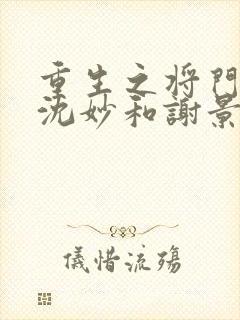 重生之将门
沈妙和謝景
儀惜流殤